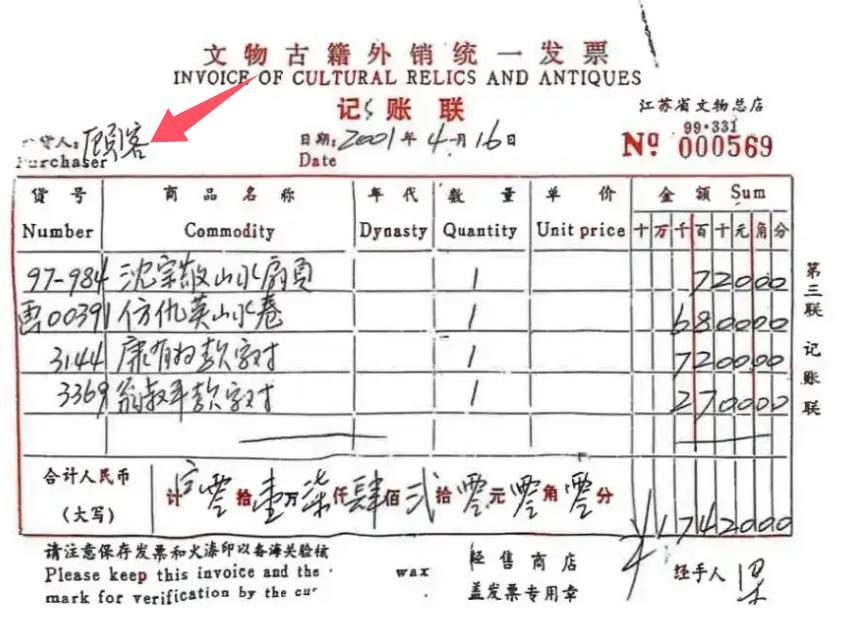 文物古籍外销统一发票
INVOICE OF CULTURAL RELICS AND ANTIQUES
记账联
江苏省文物总店
99·331
货人：顾客
Purchaser
日期：2001年4月16日
Date
Nº 000569
货号 商品名称 年代 数量 单价 金额 Sum
Number Commodity Dynasty Quantity Unit price 十万千百十元角分
97-984 沈宗敬山水扇页 1 72000
画00391 仿仇英山水卷 1 680000
3144 康有为款字对 1 720000
3369 翁叔平款字对 1 270000
合计人民币（大写） 计 零拾壹万柒仟肆佰贰拾零元零角零分 ¥1742000
请注意保存发票和火漆印以备海关验核
Please keep this invoice and the wax
mark for verification by the
经售商店
盖发票专用章
经手人
第三联 记账联